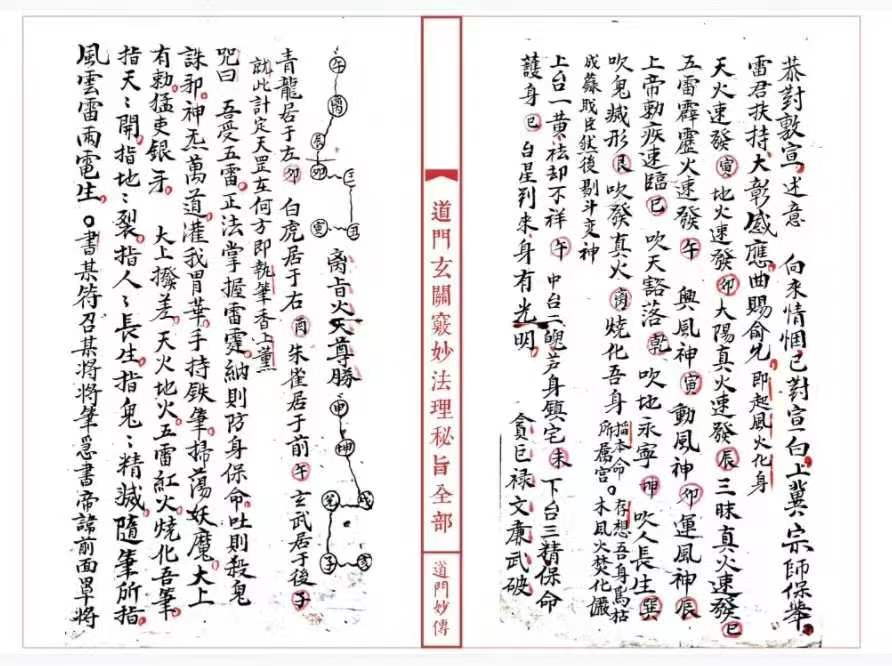 恭對敷宣。述意　向來情悃已對宣白上冀宗師保舉
雷君扶持大彰感應曲賜俞允即起風火化身
天火速發寅地火速發卯大陽真火速發辰三昧真火速發巳
五雷霹靂火速發午　興風神寅動風神卯運風神辰
上帝勅疾速臨巳　吹天谿落乾吹地永寧坤吹人長生巽
吹鬼滅形艮吹發真火　燒化吾身　指本命所属宮。存想吾身為枯木風火焚化儼
成蘇戝臣然後剔斗变神
上台一黄祛却不祥午　中台二魄芦身鎮宅未　下台三精保命
護身巳　台星到來身有光明。　貪巨禄文廉武破
道門玄關竅妙法理秘旨全部
道門妙傳
午
辰
卯
寅
离旨火天尊勝
申
坤
戌
子
亥
青龍居于左卯　白虎居于右酉　朱雀居于前午　玄武居于後子
就此計定天罡在何方即執筆香上薰
咒曰　吾受五雷。正法掌握雷霆。納則防身保命。吐則殺鬼
誅邪。神炁萬道。灌我胃華。手持鉄筆。掃蕩妖魔。大上
有勅。猛吏銀牙　大上撥差。天火地火。五雷紅火。燒化吾筆。
指天〻開。指地〻裂。指人〻長生。指鬼〻精滅。隨筆所指。
風雲雷雨電生。○書某符召某將將筆意書帝諱前面罩將